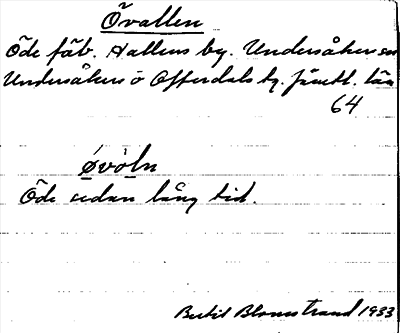 Övallen
Öde fäb. Hallens by. Undersåker sn
Undersåkers o Offerdals tg. Jämtl. län
64
øvòln
Öde sedan lång tid.
Bertil Blomstrand 1933